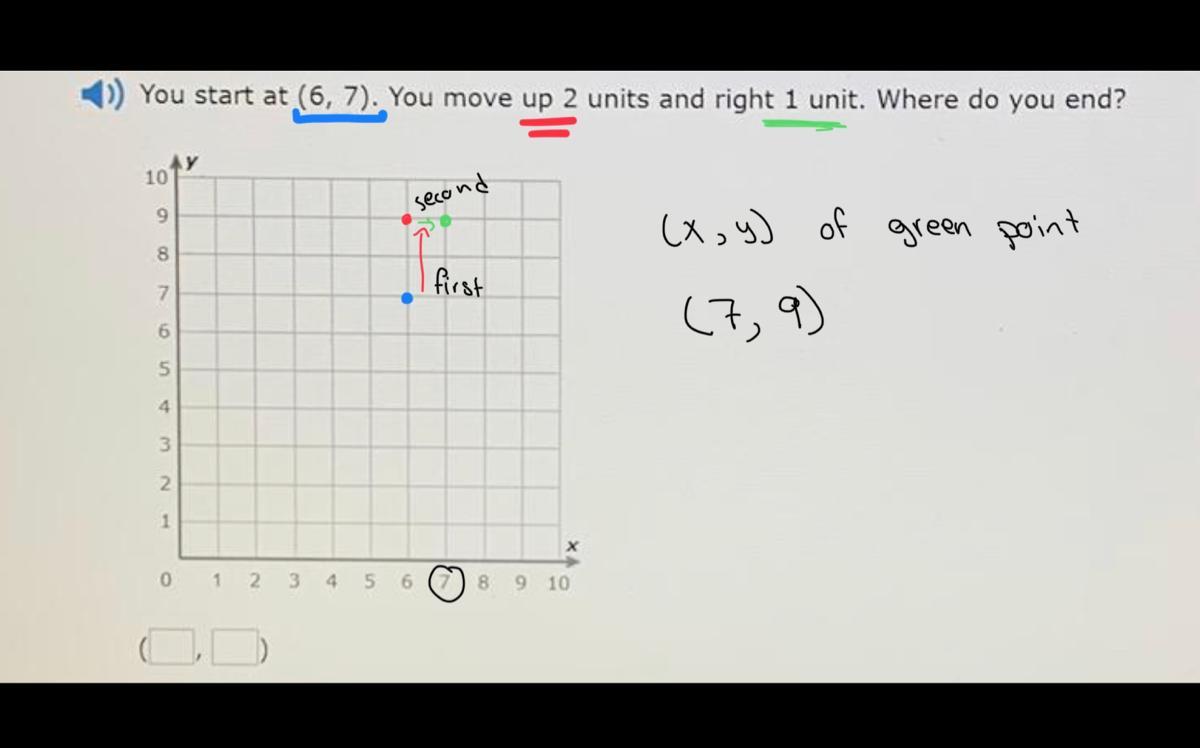 You start at (6, 7). You move up 2 units and right 1 unit. Where do you end?
y
10
second
9
(x, y) of green point
8
7
first
(7, 9)
6
5
4
3
2
1
x
0 1 2 3 4 5 6 7 8 9 10
( , )